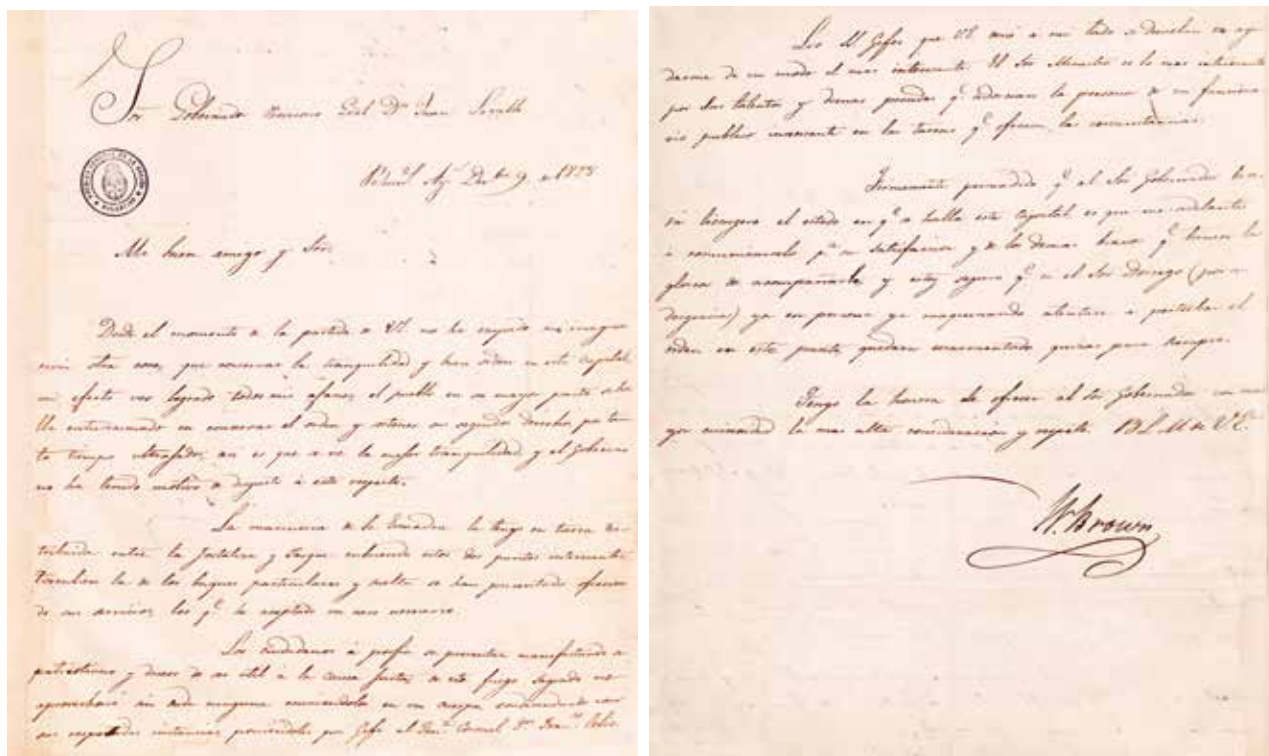 Sor Gobernador Provisorio Gral Dn Juan Lavalle
Bs Ays Dbre 9 de 1828
Mi buen amigo y Sor
Desde el momento de la partida de VE. no ha ocupado mi imagina
cion otra cosa, que conservar la tranquilidad y buen orden en esta Capital
en efecto veo logrado todos mis afanes, el pueblo en su mayor parte se ha
lla entusiasmado en conservar el orden y sus sagrados derechos, por tan
to tiempo así es que se ve la mejor tranquilidad y el Gobierno
no ha tenido motivo de disgusto à este respecto.
La marineria de la Escuadra la tengo en tierra dis
tribuida entre la Fortaleza y Parque cubriendo estos dos puntos interesantes
Tambien la de los buques particulares y se han presentado ofrecien
do sus servicios, los qe he aceptado en caso necesario.
Los ciudadanos à porfia se presentan manifestando su
patriotismo y deseos de ser util à la causa justa, de este fuego sagrado me
aprovecharé sin duda ninguna en un cuerpo
sus respectivas instancias poniendoles por Gefe al Coronel Dn
Los SS Gefes que VE à mi lado se desvelan en ayu
darme de un modo el mas interesante. El Sor Ministro es lo mas interesante
por sus talentos y demas prendas qe adornan la persona de un funciona
rio publico incesante en las tareas qe ofrecen las circunstancias.
Firmemente persuadido qe al Sor Gobernador
el estado en qe se halla esta Capital es que me adelanto
à comunicarselo pa su satisfaccion y de los demas bravos qe tienen la
gloria de acompañarle y estoy seguro qe si el Sor Dorrego (por su
desgracia) ya en persona ya maquinando atentase à perturbar el
orden en este punto, quedará escarmentado quizas para siempre.
Tengo la honra de ofrecer al Sor Gobernador con ma
yor la mas alta consideracion y respeto. BLM de VE.
W. Brown